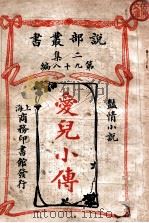 說部叢書
二集
第九十八編
豔情小說
愛兒小傳
上海
商務印書館發行